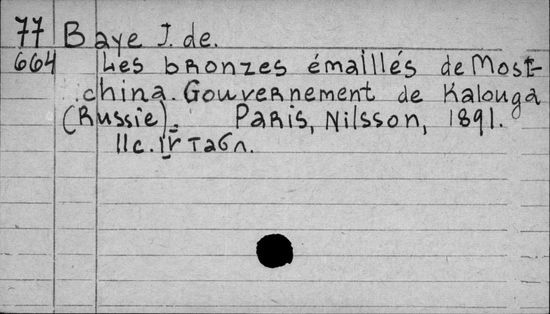 77 Baye J. de.
664 Les bronzes émaillés de Most-
china. Gouvernement de Kalouga
(Russie). Paris, Nilsson, 1891.
11c. табл.